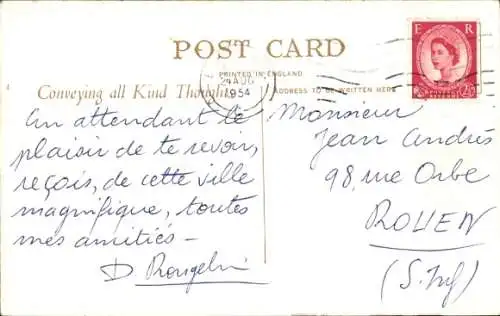 POST CARD
PRINTED IN ENGLAND
Conveying all Kind Thoughts
ADDRESS TO BE WRITTEN HERE
AUG
1954
E R
En attendant le
plaisir de te revoir,
reçois, de cette ville
magnifique, toutes
mes amitiés –
D
Monsieur
Jean Andrés
98, rue Orbe
ROUEN
(S. Inf)